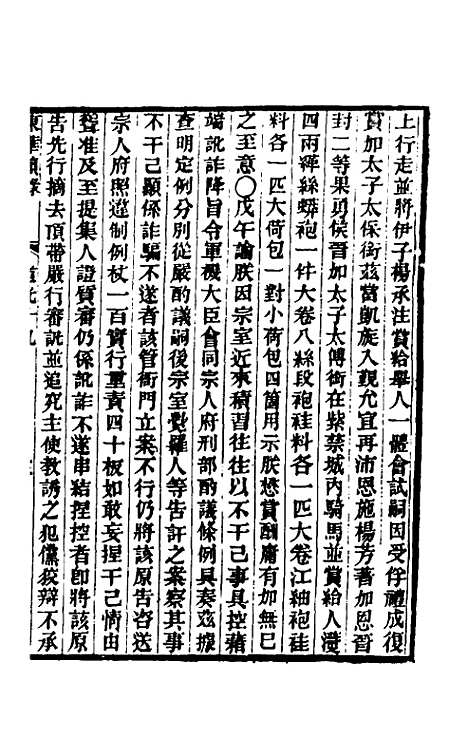 上行走並將伊子楊承注賞給舉人一體會試嗣因受俘禮成復
賞加太子太保銜茲當凱旋入覲允宜再沛恩施楊芳著加恩晉
封二等果勇侯晉加太子太傅銜在紫禁城內騎馬並賞給人葠
四兩繹絲蟒袍一件大卷八絲段袍褂料各一匹大卷江紬袍褂
料各一匹大荷包一對小荷包四箇用示朕懋賞酬庸有加無已
之至意○戊午諭朕因宗室近來積習往往以不干己事具控藉
端訛詐降旨令軍機大臣會同宗人府刑部酌議條例具奏茲據
查明定例分別從嚴酌議嗣後宗室覺羅人等告訐之案察其事
不干己顯係詐騙不遂者該管衙門立案不行仍將該原告咨送
宗人府照違制例杖一百實行重責四十板如敢妄捏干己情由
聳准及至提集人證質審仍係訛詐不遂串結捏控者卽將該原
告先行摘去頂帶嚴行審訊並追究主使教誘之犯儻狡辯不承
東華續錄